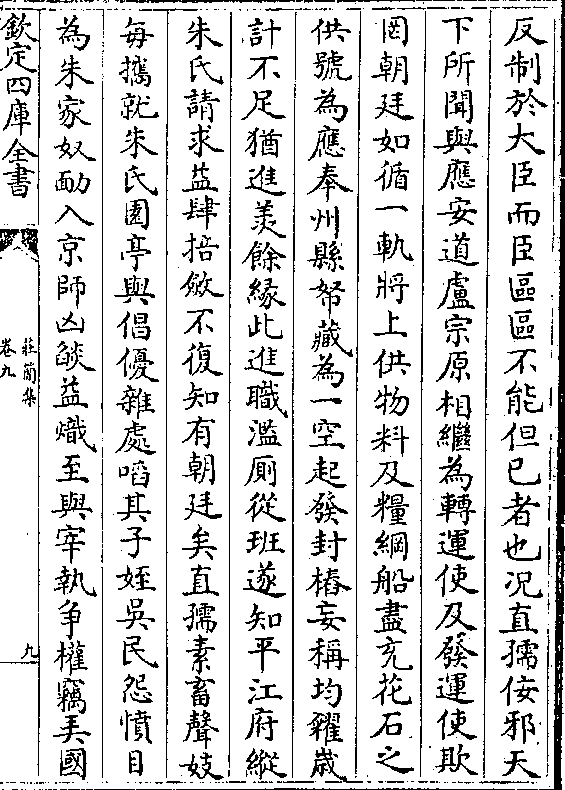 反制於大臣而臣區區不能但已者也况直孺佞邪天
下所聞與應安道盧宗原相繼為轉運使及發運使欺
罔朝廷如循一軌將上供物料及糧綱船盡充花石之
供號為應奉州縣帑藏為一空起發封樁妄稱均糴歲
計不足猶進羡餘緣此進職濫厠從班遂知平江府縱
朱氏請求益肆掊斂不復知有朝廷矣直孺素畜聲妓
每攜就朱氏園亭與倡優雜處啗其子姪吳民怨憤目
為朱家奴動入京師凶燄益熾至與宰執争權竊弄國
欽定四庫全書
莊簡集
卷九
九